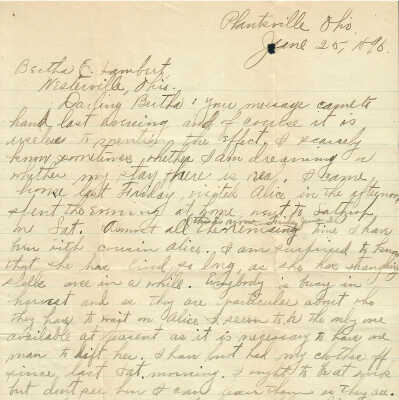 Plantsville Ohio
June 25, 1890.
Bertha E. Lambert,
Westerville, Ohio.
Darling Bertha: Your message came to
hand last evening and of course it is
useless to mention the effect. I scarcely
know sometimes whether I am dreaming or
whether my stay there is real. I came
home last Friday, visited Alice in the afternoon,
spent the evening at home, went to
on Sat. Almost all the remaining time I have
been with cousin Alice. I am surprised to know
that she has lived so long, as she has
spells once in a while. Everybody is busy in
harvest and as they are particular about who
they have to wait on Alice I seem to be the only one
available at present as it is necessary to have one
man to lift her. I have not had my clothes off
since last Sat. morning. I ought to be at work
but don't see how I can leave them as they are.